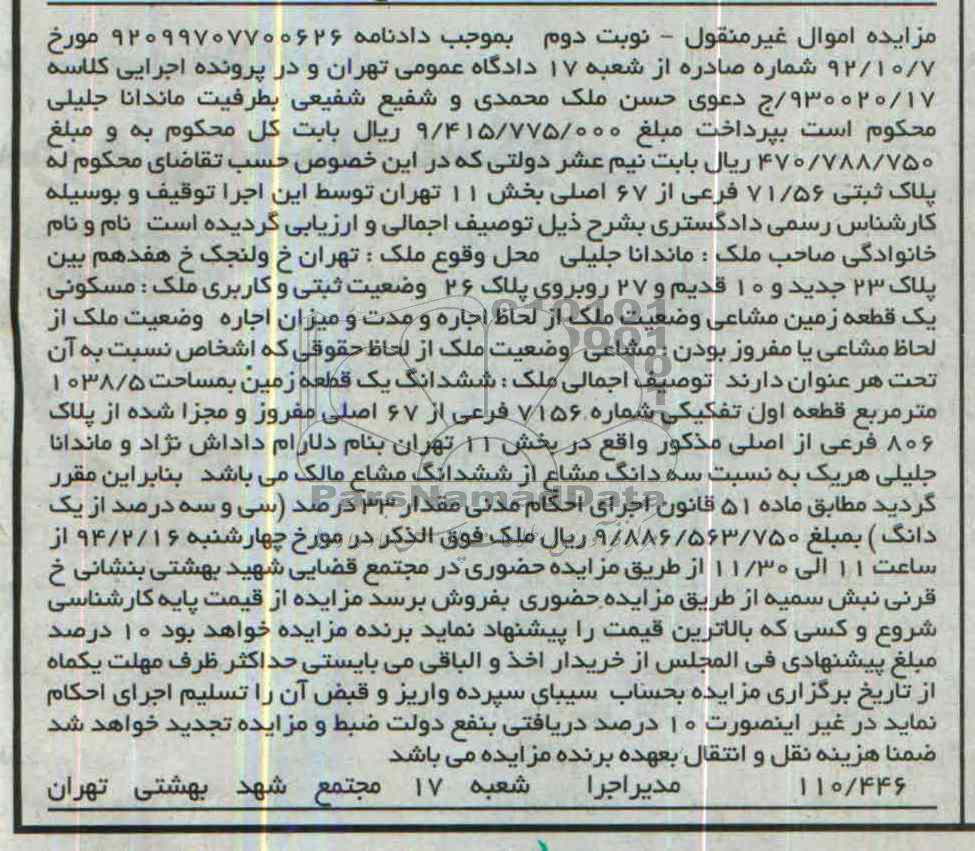 مزایده اموال غیرمنقول - نوبت دوم   بموجب دادنامه ۹۲۰۹۹۷۰۷۷۰۰۶۲۶ مورخ
۹۲/۱۰/۷ شماره صادره از شعبه ۱۷ دادگاه عمومی تهران و در پرونده اجرایی کلاسه
۹۳۰۰۲۰/۱۷/ج دعوی حسن ملک محمدی و شفیع شفیعی بطرفیت ماندانا جلیلی
محکوم است بپرداخت مبلغ ۹/۴۱۵/۷۷۵/۰۰۰ ریال بابت کل محکوم به و مبلغ
۴۷۰/۷۸۸/۷۵۰ ریال بابت نیم عشر دولتی که در این خصوص حسب تقاضای محکوم له
پلاک ثبتی ۷۱/۵۶ فرعی از ۶۷ اصلی بخش ۱۱ تهران توسط این اجرا توقیف و بوسیله
کارشناس رسمی دادگستری بشرح ذیل توصیف اجمالی و ارزیابی گردیده است   نام و نام
خانوادگی صاحب ملک : ماندانا جلیلی   محل وقوع ملک : تهران خ ولنجک خ هفدهم بین
پلاک ۲۳ جدید و ۱۰ قدیم و ۲۷ روبروی پلاک ۲۶   وضعیت ثبتی و کاربری ملک : مسکونی
یک قطعه زمین مشاعی وضعیت ملک از لحاظ اجاره و مدت و میزان اجاره   وضعیت ملک از
لحاظ مشاعی یا مفروز بودن : مشاعی   وضعیت ملک از لحاظ حقوقی که اشخاص نسبت به آن
تحت هر عنوان دارند   توصیف اجمالی ملک : ششدانگ یک قطعه زمین بمساحت ۱۰۳۸/۵
مترمربع قطعه اول تفکیکی شماره ۷۱۵۶ فرعی از ۶۷ اصلی مفروز و مجزا شده از پلاک
۸۰۶ فرعی از اصلی مذکور واقع در بخش ۱۱ تهران بنام دلارام داداش نژاد و ماندانا
جلیلی هریک به نسبت سه دانگ مشاع از ششدانگ مشاع مالک می باشد   بنابراین مقرر
گردید مطابق ماده ۵۱ قانون اجرای احکام مدنی مقدار ۳۳ درصد (سی و سه درصد از یک
دانگ ) بمبلغ ۹/۸۸۶/۵۶۳/۷۵۰ ریال ملک فوق الذکر در مورخ چهارشنبه ۹۴/۲/۱۶ از
ساعت ۱۱ الی ۱۱/۳۰ از طریق مزایده حضوری در مجتمع قضایی شهید بهشتی بنشانی خ
قرنی نبش سمیه از طریق مزایده حضوری بفروش برسد مزایده از قیمت پایه کارشناسی
شروع و کسی که بالاترین قیمت را پیشنهاد نماید برنده مزایده خواهد بود ۱۰ درصد
مبلغ پیشنهادی فی المجلس از خریدار اخذ و الباقی می بایستی حداکثر ظرف مهلت یکماه
از تاریخ برگزاری مزایده بحساب سیبای سپرده واریز و قبض آن را تسلیم اجرای احکام
نماید در غیر اینصورت ۱۰ درصد دریافتی بنفع دولت ضبط و مزایده تجدید خواهد شد
ضمنا هزینه نقل و انتقال بعهده برنده مزایده می باشد
۱۱۰/۴۴۶   مدیراجرا   شعبه ۱۷ مجتمع شهد بهشتی تهران
ParsNamadData